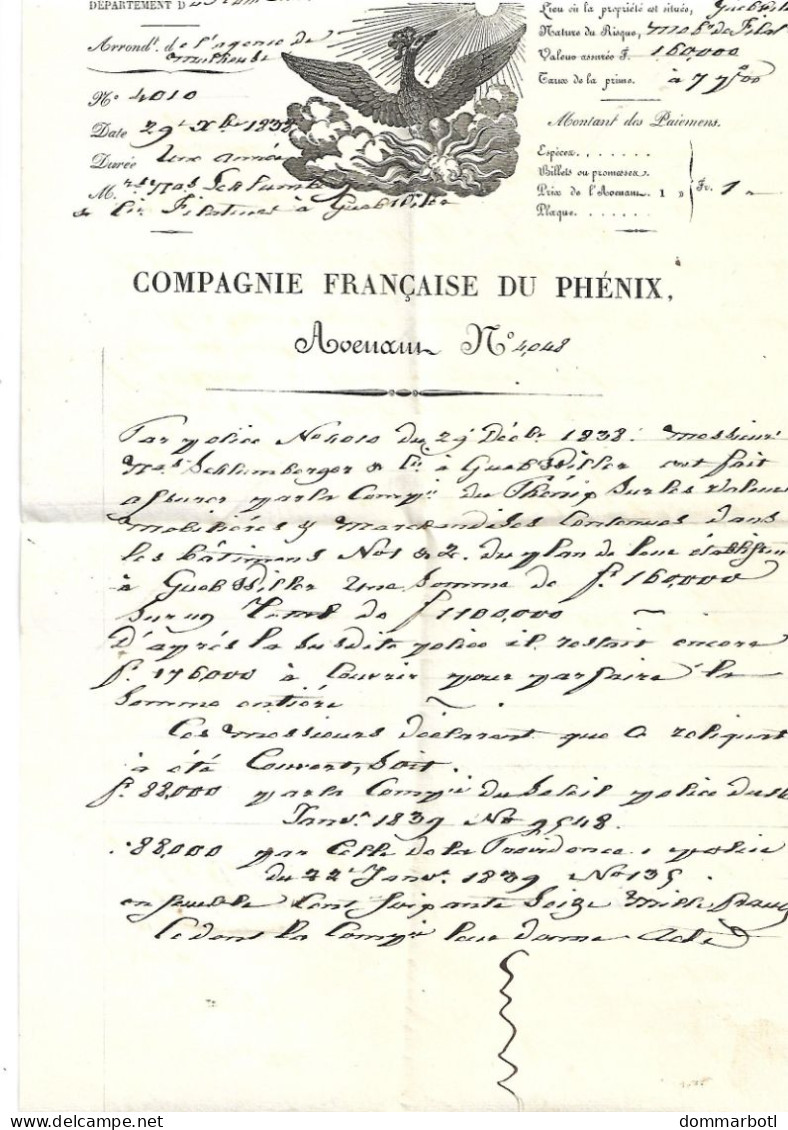 DÉPARTEMENT D
Arrond.t de l'agence de
Mulhouse
N.o 4010
Date 29 Xbre 1838
Durée Une année
M.rs Nas Schlumberger
& Cie Filateurs à Guebwiller
Lieu où la propriété est située,
Nature du Risque, Mob.r de Filat
Valeur assurée F. 160,000
Taux de la prime. à 77 %00
Montant des Paiemens.
Espèces . . . . . .
Billets ou promesses.
Prix de l'Avenant 1 " Fr. 1 "
Plaque . . . . . .
COMPAGNIE FRANÇAISE DU PHÉNIX,
Avenant N.o 4,048
Par police No 4010 du 29 Décbr 1838. Messieurs
Nas Schlumberger & Cie à Guebwiller ont fait
assurer par la Compie du Phénix sur les valeurs
mobilières & marchandises contenues dans
les bâtimens No 1 & 2. du plan de leur établissem
à Guebwiller une somme de f. 160,000
sur un total de f 1100,000
D'après la susdite police il restait encore
f. 176,000 à couvrir pour parfaire la
somme entière
Ces messieurs déclarent que ce reliquat
à été couvert, soit.
f. 88,000 par la Compie du Soleil police du
Janvr 1839 No 9548.
" 88,000 par celle de la Providence, police
du 22 Janvr. 1839 No 135
ensemble cent soixante seize mille francs
ce dont la Compie leur donne acte
dommarbotl